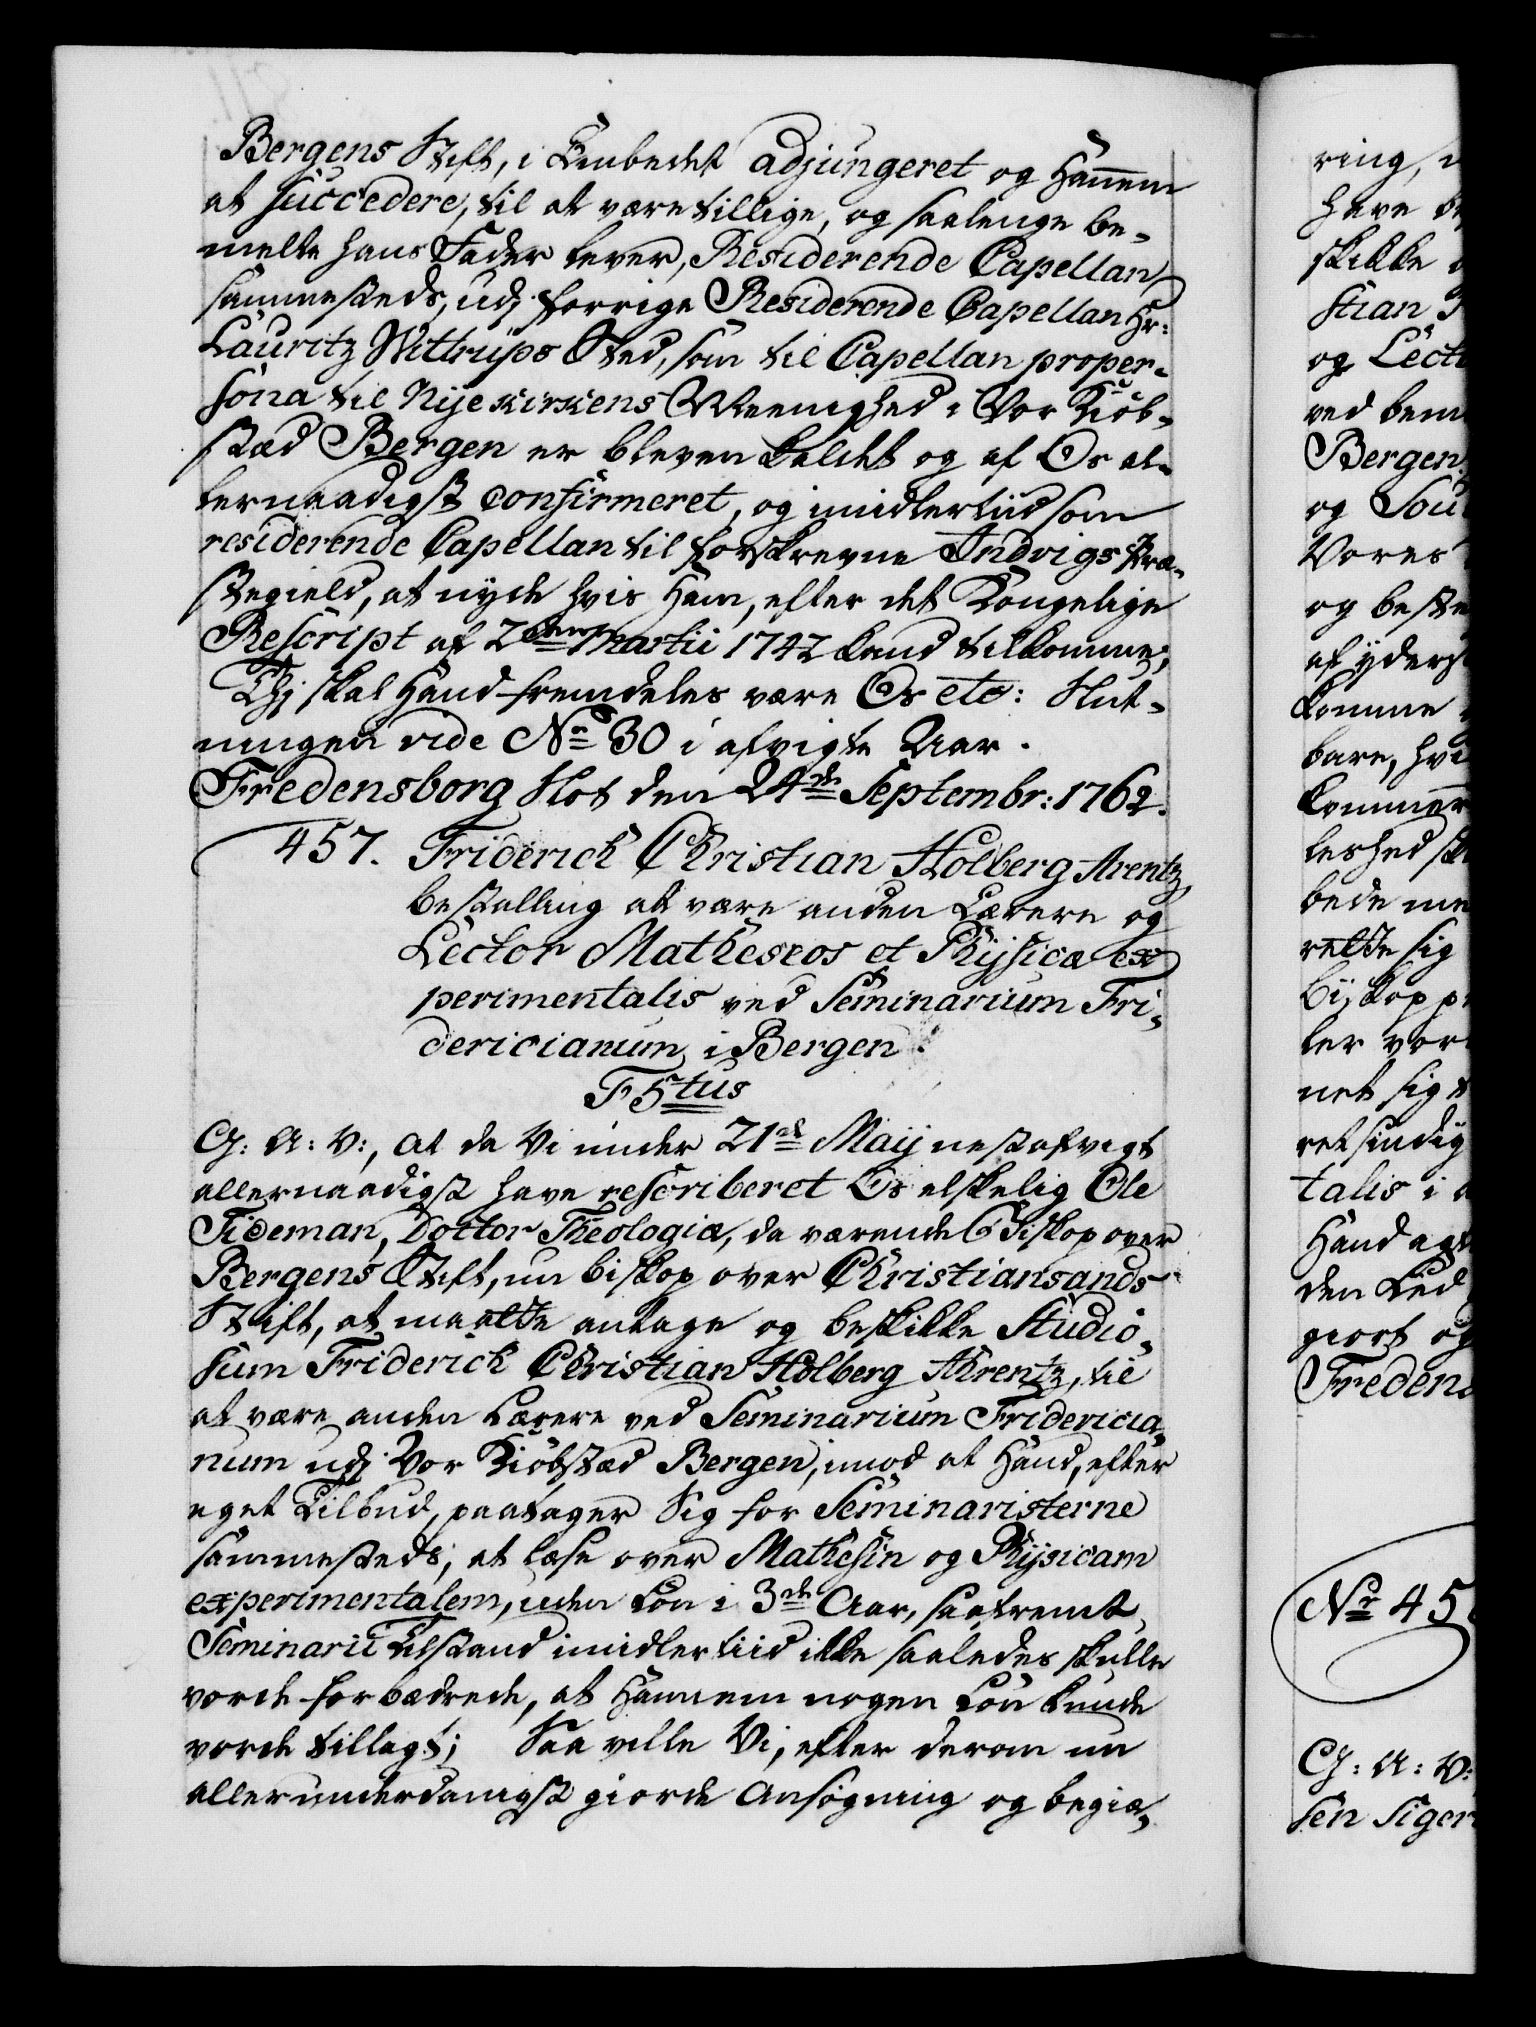 Bergens Stift, i Embedet adjungeret og Hannem
at succedere, til at være tillige, og saalenge be-
melte hans Fader lever, Residerende Capellan
sammesteds, udj forrige Residerende Capellan Hr:
Lauritz Wittrups Sted, som til Capellan proper-
sona til Nijekirkens Meenighed i Vor Kiøb-
stæd Bergen er bleven kaldet og af Os al-
lernaadigst confirmeret, og imidlertiid som
residerende Capellan til forskrevne Indvigs Præ-
stegield, at nyde hvis Ham, efter det Kongelige
Rescript af 2den Martii 1742 kand tilkomme;
Thj skal Hand fremdeles være Os etc: Slut-
ningen vide No 30 i afvigte Aar.
Fredensborg Slot den 24de Septembr: 1762.
457. Friderich Christian Holberg Arentz,
bestalling at være anden Lærere og
Lector Matheseos et Phijsicæ ex
perimentalis ved Seminarium Fri-
dericianum i Bergen.
F 5tus
G: A: V:, at da Vi under 21de Maij nestafvigt
allernaadigst have rescriberet Os elskelig Ole
Tideman, Doctor Theologiæ, da værende Biskop over
Bergens Stift, nu biskop over Christiansands
Stift, at maatte antage og beskikke Studio-
sum Friderich Christian Holberg Ahrentz, til
at være anden Lærere ved Seminarium Fridericia-
num udj Vor Kiøbstæd Bergen, imod at Hand, efter
eget Tilbud, paatager Sig for Seminaristerne
sammesteds, at læse over Mathesin og Phijsicam
experimentalem, uden Løn i 3de Aar, saafremt
Seminarii Tilstand imidlertiid ikke saaledes skulle
vorde forbædrede, at Hannem nogen Løn kunde
vorde tillagt; Saa ville Vi, efter derom nu
allerunderdanigst giorde Ansøgning og begiæ-
ring,
have
skikke
stian
og Lect
ved bem
Bergen
og Sou
Vores
og beste
af yders
komme
bare, hvi
kommer
leshed sk
bede me
rette sig
bijskopp
ler vor
net sig
retsindig
talis i
Hand agt
den Eed
giort og
Fredens
No 45
G: A: V:
sen Siger